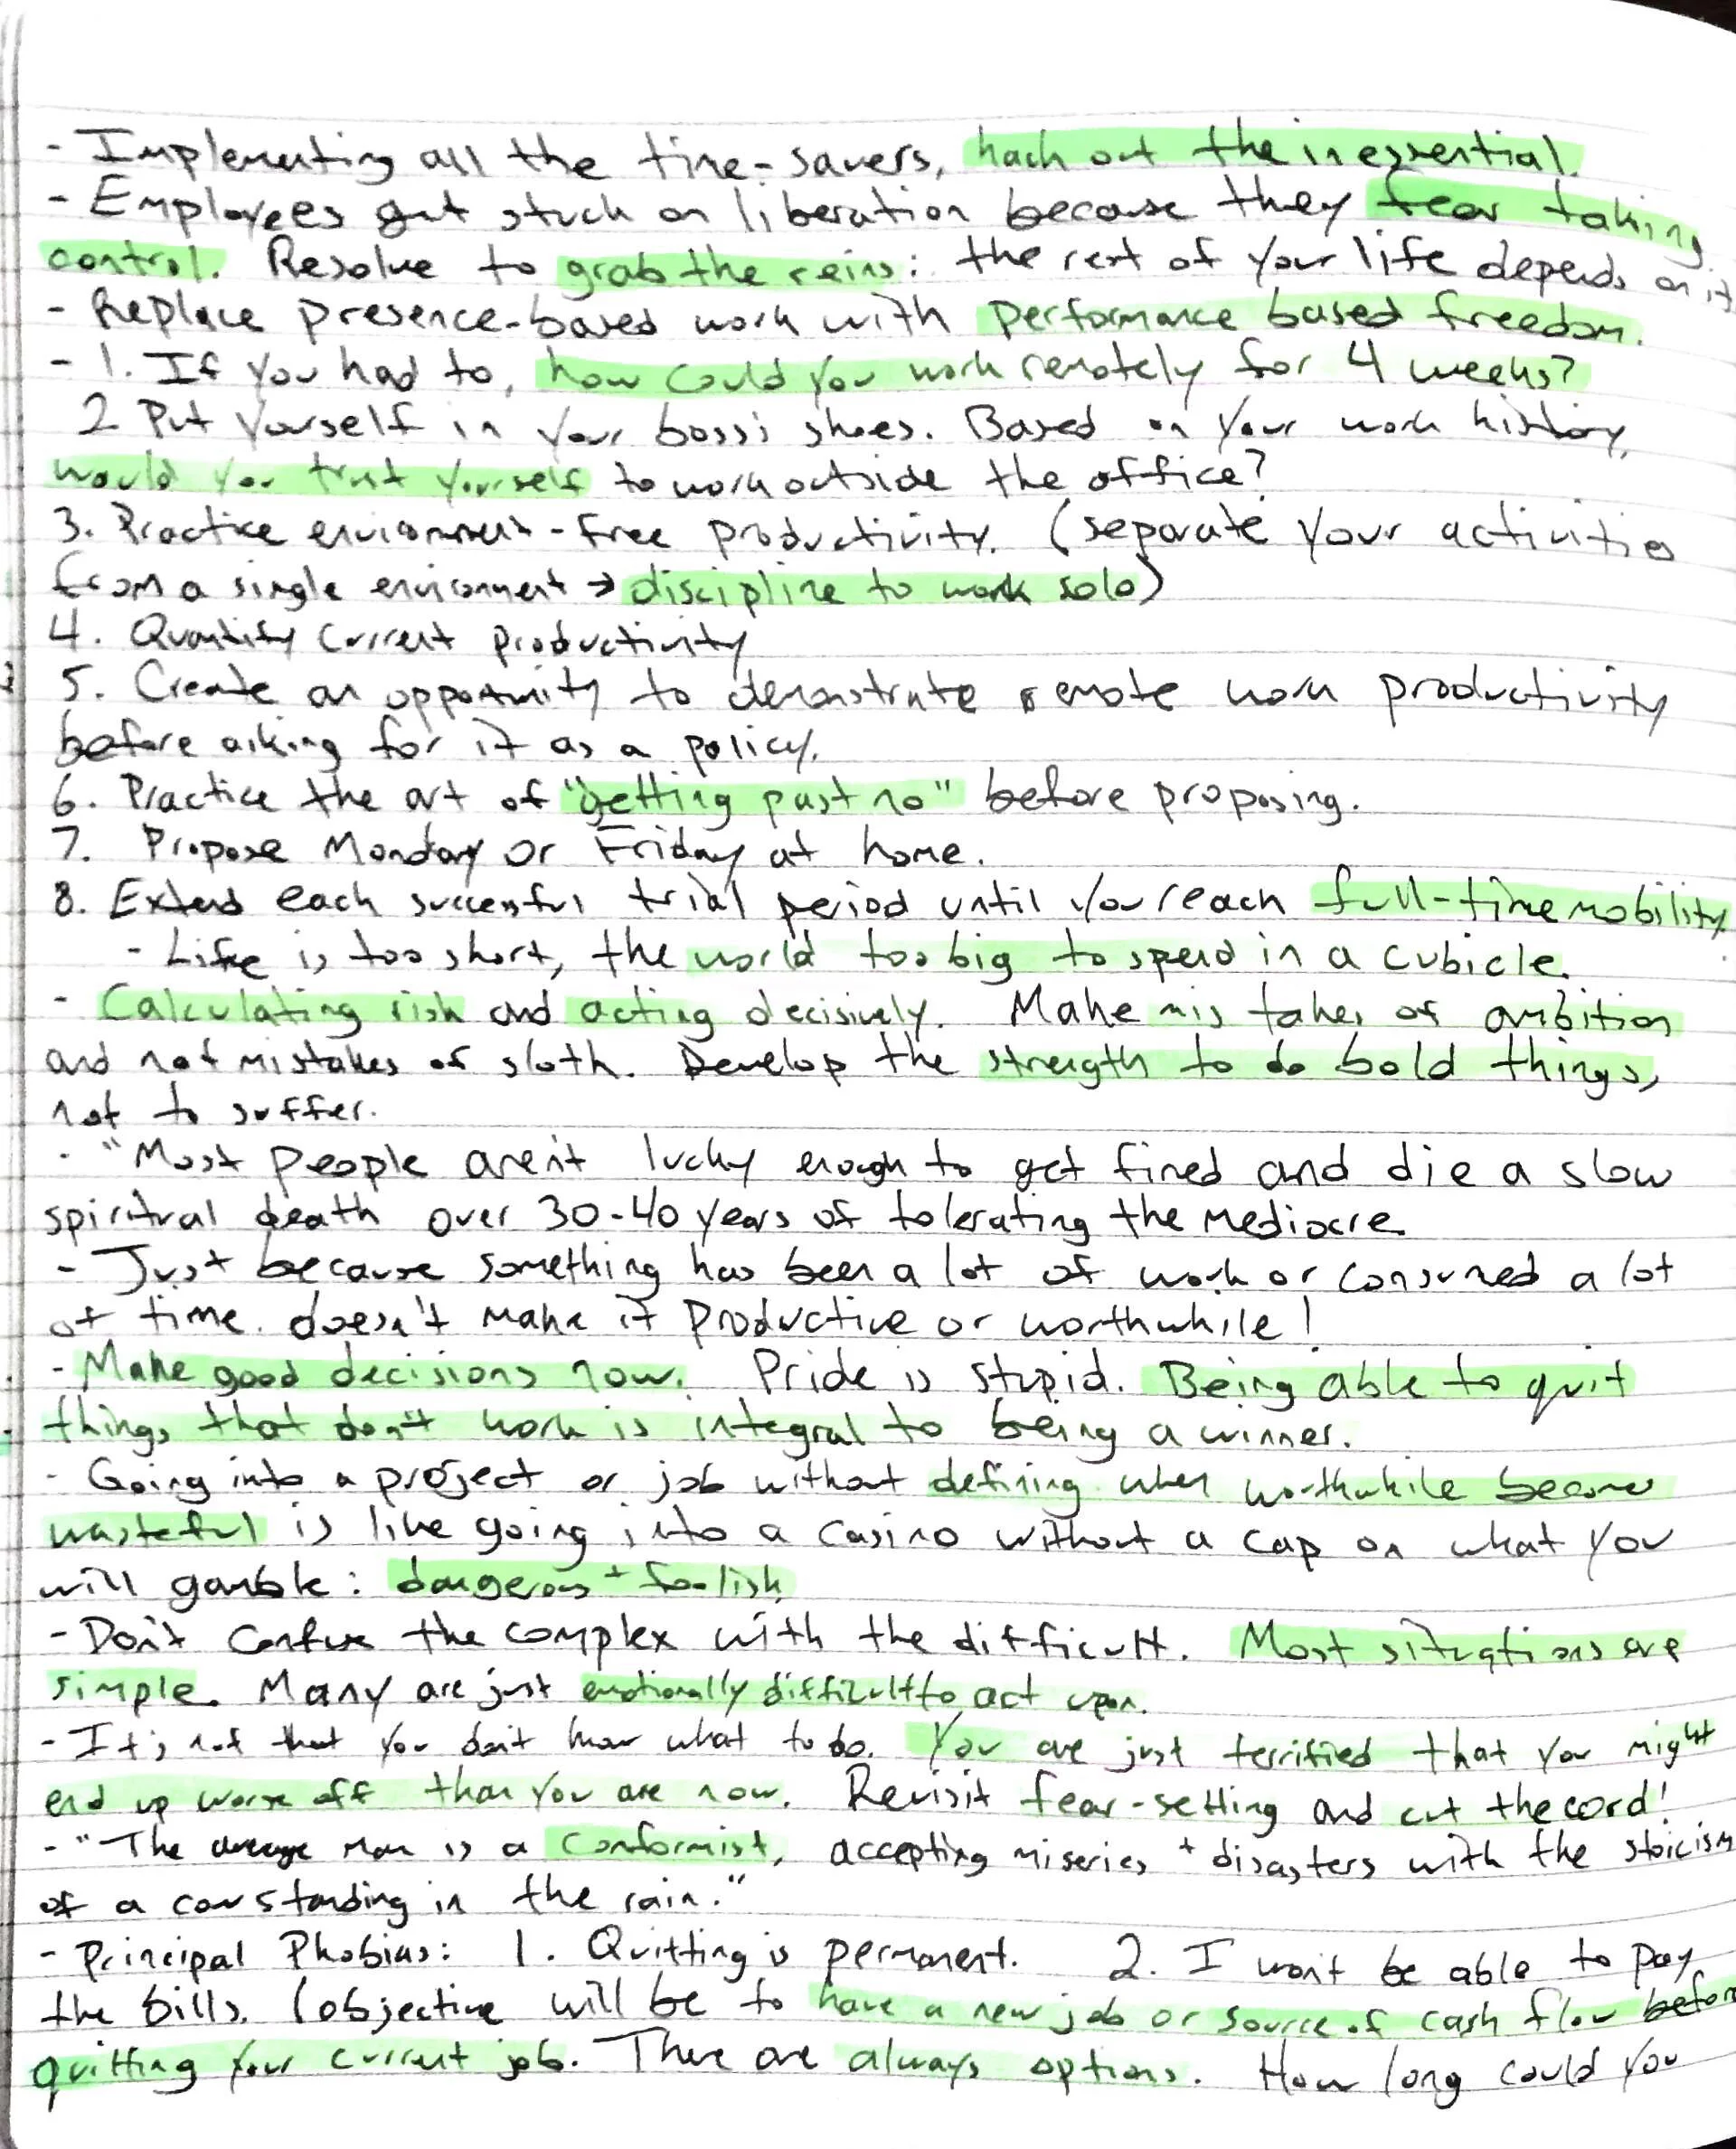 - Implementing all the time-savers, hack out the inessential.
- Employees get stuck on liberation because they fear taking
control. Resolve to grab the reins: the rest of your life depends on it
- Replace presence-based work with performance based freedom.
- 1. If you had to, how could you work remotely for 4 weeks?
2 Put yourself in your boss's shoes. Based on your work history,
would you trust yourself to work outside the office?
3. Practice environment-free productivity. (separate your activities
from a single environment → discipline to work solo)
4. Quantify current productivity
5. Create an opportunity to demonstrate remote work productivity
before asking for it as a policy.
6. Practice the art of "getting past no" before proposing.
7. Propose Monday or Friday at home.
8. Extend each successful trial period until you reach full-time mobility.
- Life is too short, the world too big to spend in a cubicle.
- Calculating risk and acting decisively. Make mistakes of ambition
and not mistakes of sloth. Develop the strength to do bold things,
not to suffer.
- "Most people aren't lucky enough to get fired and die a slow
spiritual death over 30-40 years of tolerating the mediocre
- Just because something has been a lot of work or consumed a lot
of time. doesn't make it productive or worthwhile!
- Make good decisions now. Pride is stupid. Being able to quit
things that don't work is integral to being a winner.
- Going into a project or job without defining when worthwhile becomes
wasteful is like going into a casino without a cap on what you
will gamble: dangerous + foolish.
- Don't confuse the complex with the difficult. Most situations are
simple. Many are just emotionally difficult to act upon.
- It's not that you don't know what to do. You are just terrified that you might
end up worse off than you are now. Revisit fear-setting and cut the cord!
- "The average man is a conformist, accepting miseries + disasters with the stoicism
of a cow standing in the rain."
- Principal Phobias: 1. Quitting is permanent. 2. I won't be able to pay
the bills. (objective will be to have a new job or source of cash flow before
quitting your current job. There are always options. How long could you